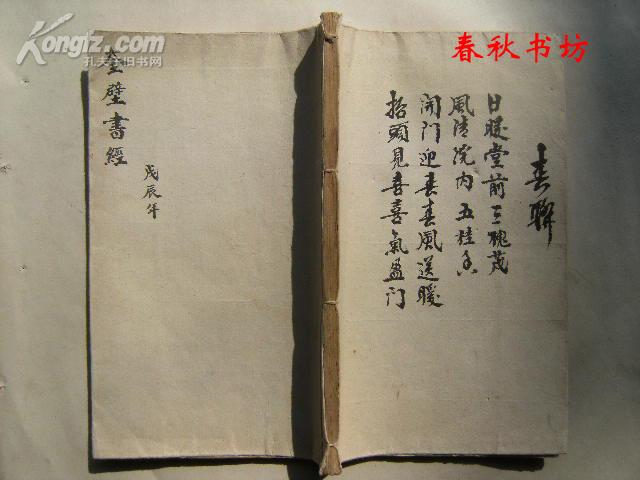 Kongfz.com
孔夫子旧书网
春秋书坊
春聯
日暖堂前三槐茂
風清院内五桂香
開门迎春春風送暖
抬頭見喜喜氣盈门
全璧書經
戊辰年